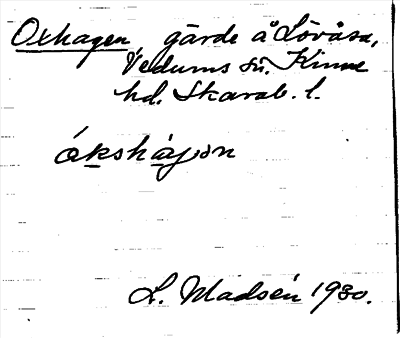 Oxhagen gärde å Lövåsa,
Vedums sn. Kinne
hd. Skarab. l.
ákshàgɔn
L. Madsén 1930.